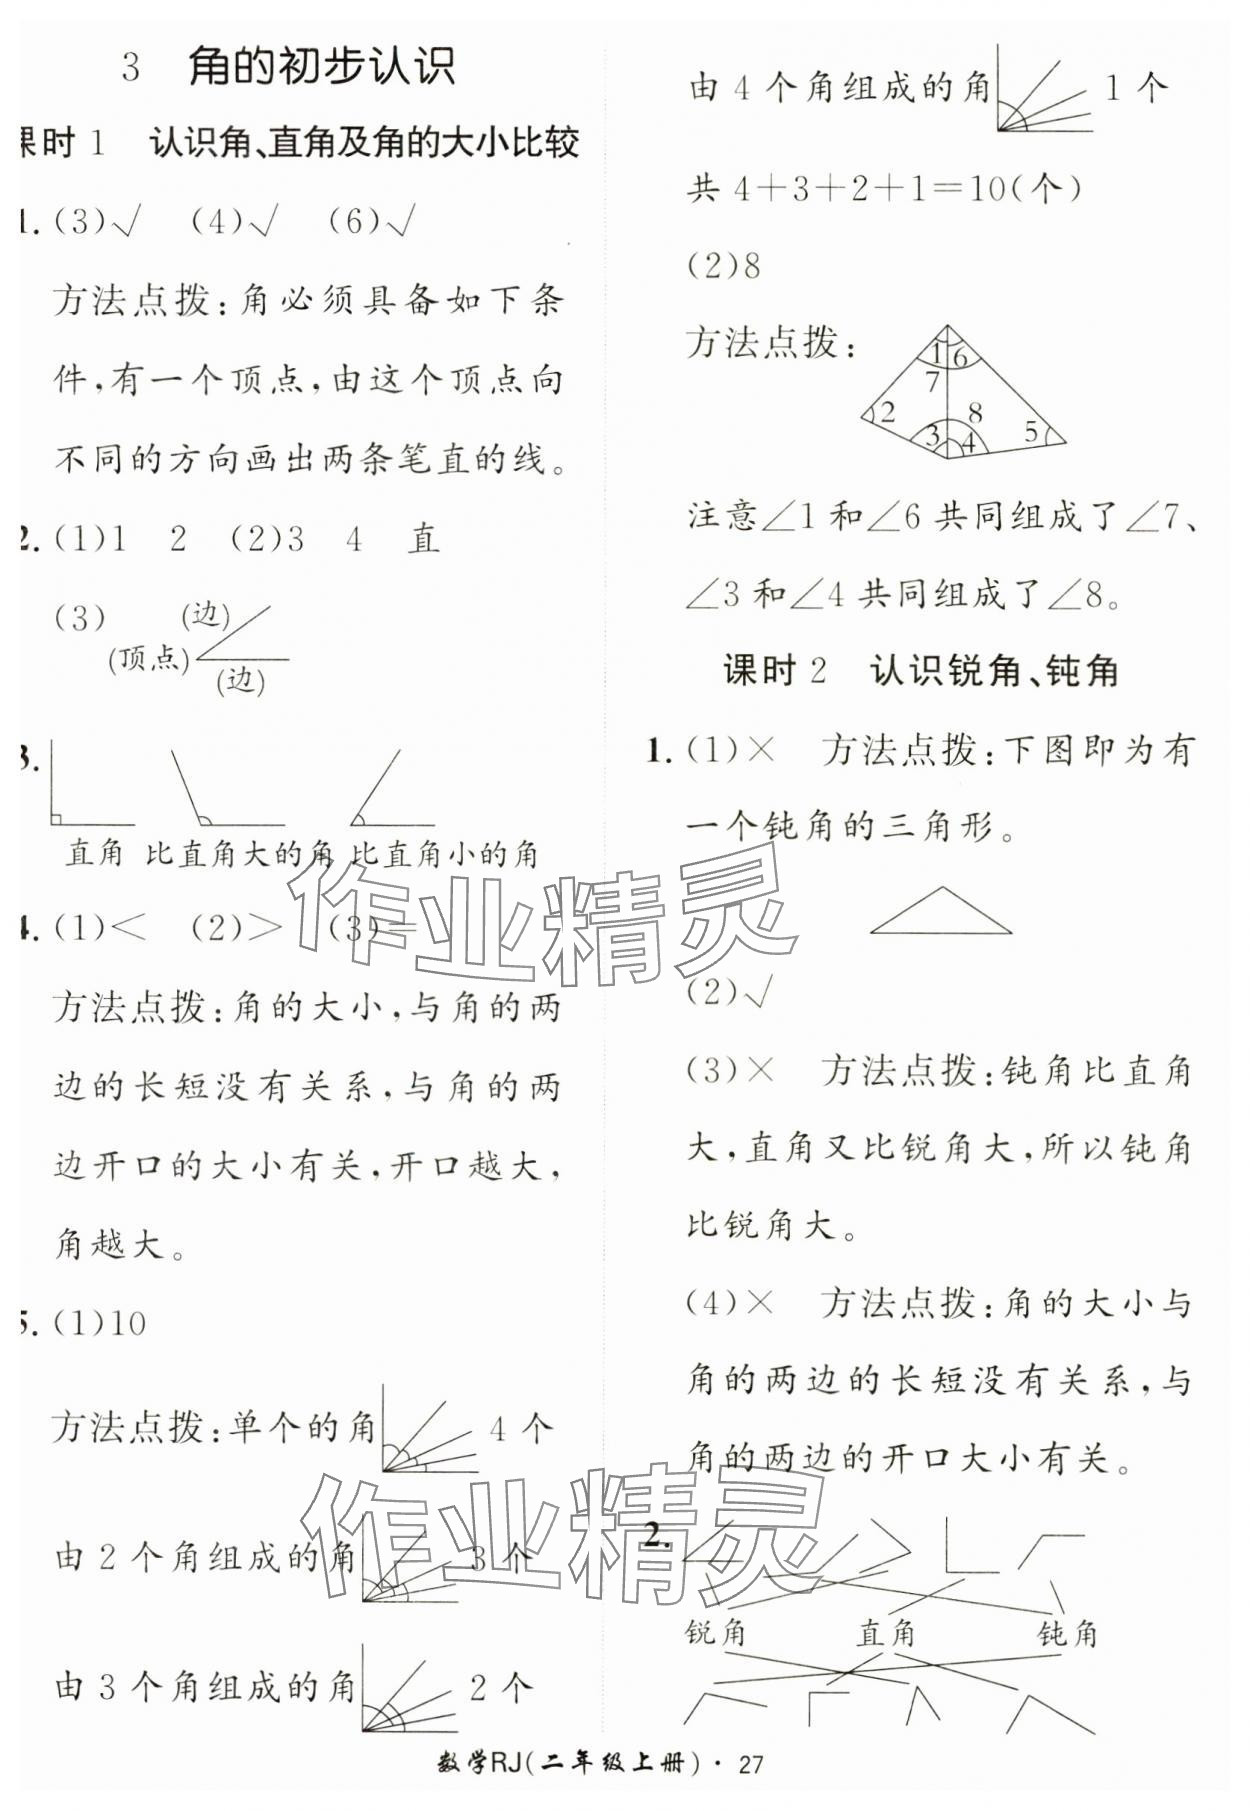 3 角的初步认识
课时 1 认识角、直角及角的大小比较
1. (3)√ (4)√ (6)√
方法点拨:角必须具备如下条
件,有一个顶点,由这个顶点向
不同的方向画出两条笔直的线。
2. (1)1 2 (2)3 4 直
(3) (边)
(顶点)
(边)
3.
直角 比直角大的角 比直角小的角
4. (1)< (2)> (3)=
方法点拨:角的大小,与角的两
边的长短没有关系,与角的两
边开口的大小有关,开口越大,
角越大。
5. (1)10
方法点拨:单个的角 4 个
由 2 个角组成的角 3 个
由 3 个角组成的角 2 个
由 4 个角组成的角 1 个
共 4+3+2+1=10(个)
(2)8
方法点拨:
1 6
7
2 8
3 4 5
注意∠1 和∠6 共同组成了∠7、
∠3 和∠4 共同组成了∠8。
课时 2 认识锐角、钝角
1. (1)× 方法点拨:下图即为有
一个钝角的三角形。
(2)√
(3)× 方法点拨:钝角比直角
大,直角又比锐角大,所以钝角
比锐角大。
(4)× 方法点拨:角的大小与
角的两边的长短没有关系,与
角的两边的开口大小有关。
2.
锐角 直角 钝角
数学RJ(二年级上册)·27
作业精灵
作业精灵